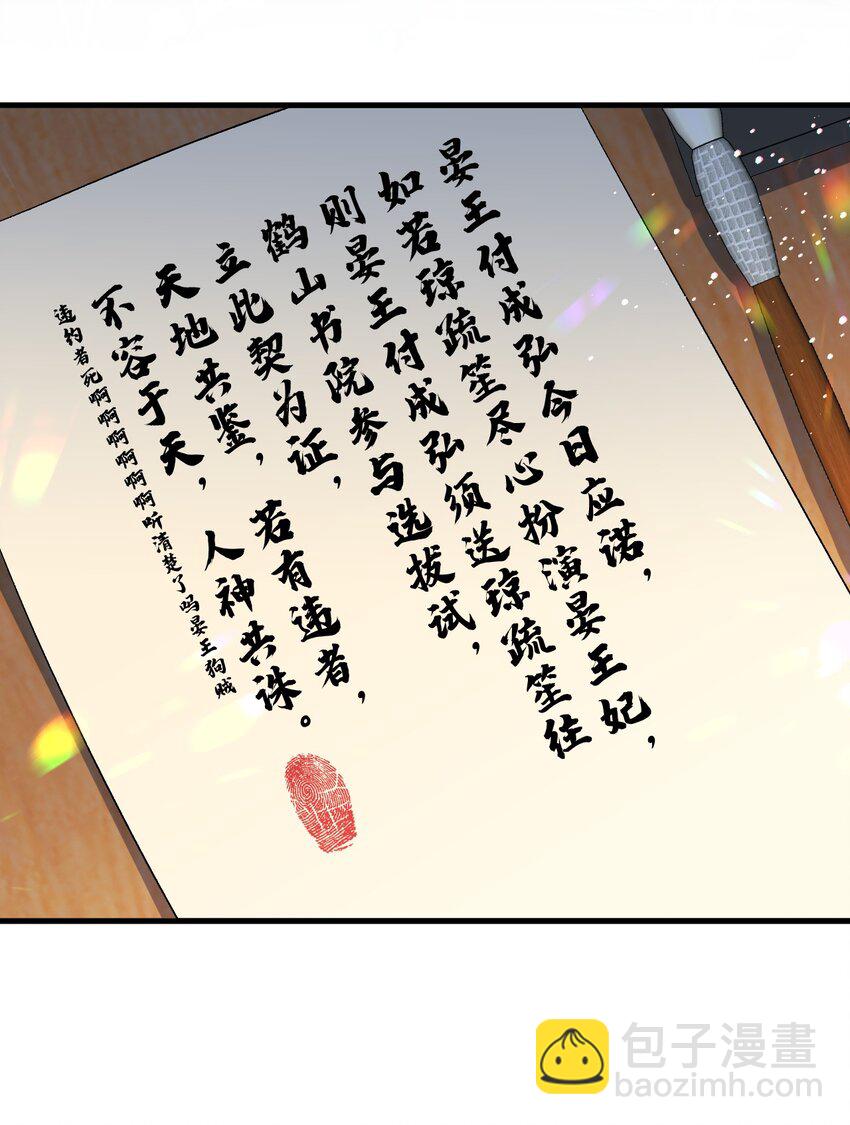 晏王付成弘今日应诺，
如若琼疏笙尽心扮演晏王妃，
则晏王付成弘须送琼疏笙往
鹤山书院参与选拔试，
立此契为证，
天地共鉴，若有违者，
不容于天，人神共诛。
违约者死啊啊啊啊啊啊听清楚了吗晏王狗贼
包子漫畫
baozimh.com